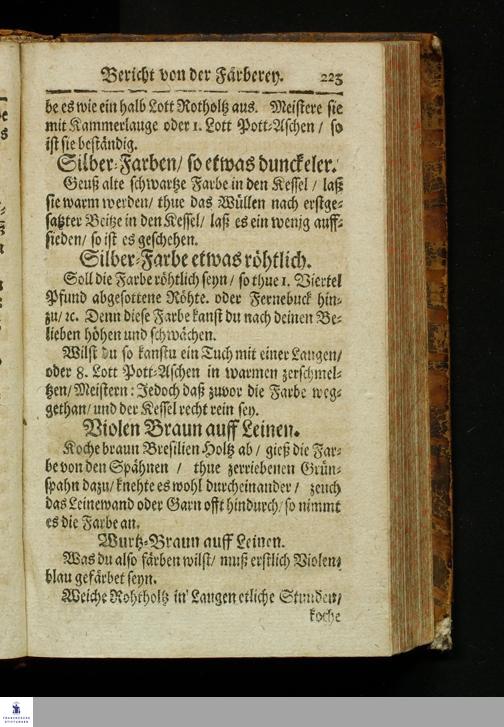 Bericht von der Färberey. 223
be es wie ein halb Lott Rotholtz aus. Meistere sie
mit Kammerlauge oder 1. Lott Pott-Aschen / so
ist sie beständig.
Silber-Farben / so etwas dunckeler.
Geuß alte schwartze Farbe in den Kessel / laß
sie warm werden / thue das Wüllen nach erstge-
satzter Beitze in den Kessel / laß es ein wenig auff-
sieden / so ist es geschehen.
Silber-Farbe etwas röhtlich.
Soll die Farbe röhtlich seyn / so thue 1. Viertel
Pfund abgesottene Röhte. oder Fernebuck hin-
zu / ꝛc. Denn diese Farbe kanst du nach deinen Be-
lieben höhen und schwächen.
Wilst du so kanstu ein Tuch mit einer Laugen /
oder 8. Lott Pott-Aschen in warmen zerschmel-
tzen / Meistern: Jedoch daß zuvor die Farbe weg-
gethan / und der Kessel recht rein sey.
Violen Braun auff Leinen.
Koche braun Bresilien-Holtz ab / gieß die Far-
be von den Spähnen / thue zerriebenen Grün-
spahn dazu / knehte es wohl durcheinander / zeuch
das Leinewand oder Garn offt hindurch / so nimmt
es die Farbe an.
Wurtz-Braun auff Leinen.
Was du also färben wilst / muß erstlich Violen-
blau gefärbet seyn.
Weiche Rohtholtz in Laugen etliche Stunden /
koche
FRANCKESCHE
STIFTUNGEN